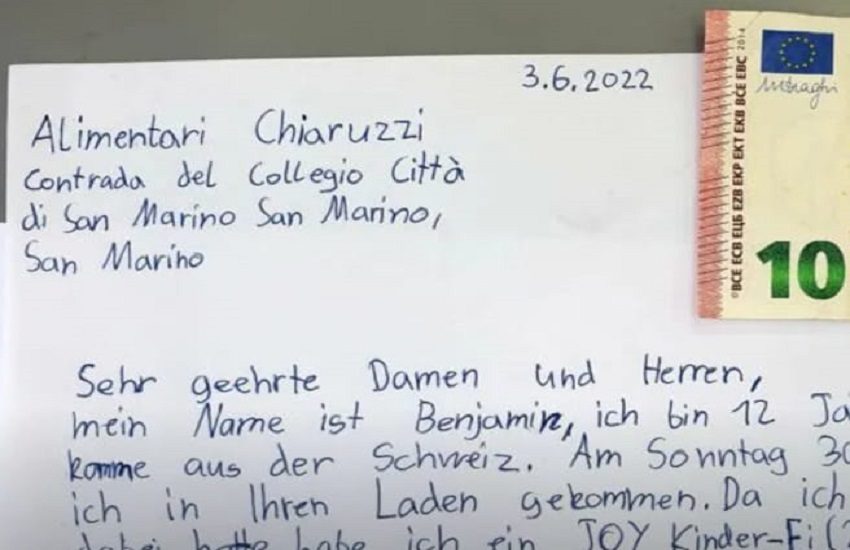 3.6.2022
Alimentari Chiaruzzi
Contrada del Collegio Città
di San Marino San Marino,
San Marino
Sehr geehrte Damen und Herren,
mein Name ist Benjamin, ich bin 12 Ja
komme aus der Schweiz. Am Sonntag 30
ich in Ihren Laden gekommen. Da ich
dabei hatte habe ich ein JOY Kinder-Ei (2
2014
©BCE ECB ЕЦБ EZB EKP EKT EKB BĊE EBC
10